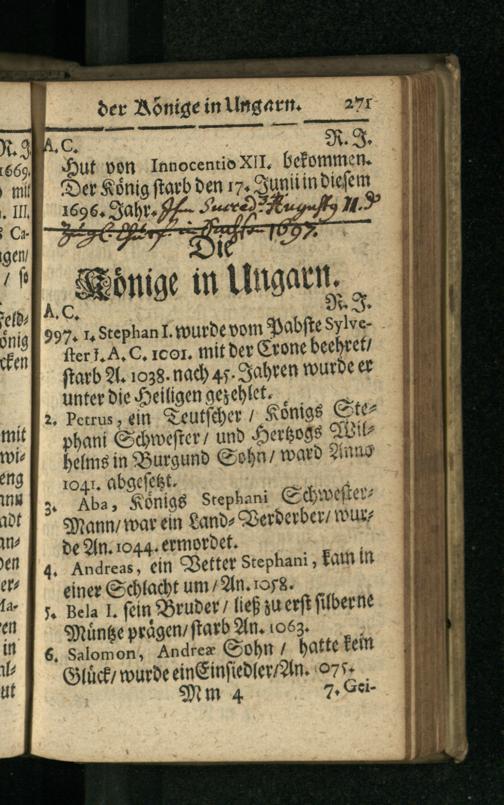 der Könige in Ungarn. 271
A. C. R. J.
Hut von Innocentio XII. bekommen.
Der König starb den 17. Junii in diesem
1696. Jahr. Ihm Succed. Augusty II. d
zugl. Churf. in Sachsen 1697.
Die
Könige in Ungarn.
A. C. R. J.
997. 1. Stephan I. wurde vom Pabste Sylve-
ster I. A. C. 1001. mit der Crone beehret/
starb A. 1038. nach 45. Jahren wurde er
unter die Heiligen gezehlet.
2. Petrus, ein Teutscher / Königs Ste-
phani Schwester / und Hertzogs Wil-
helms in Burgund Sohn / ward Anno
1041. abgesetzt.
3. Aba, Königs Stephani Schwester-
Mann/ war ein Land-Verderber/ wur-
de An. 1044. ermordet.
4. Andreas, ein Vetter Stephani, kam in
einer Schlacht um/ An. 1058.
5. Bela I. sein Bruder / ließ zu erst silberne
Müntze prägen/ starb An. 1063.
6. Salomon, Andreæ Sohn / hatte kein
Glück/ wurde ein Einsiedler/ An. 075.
Mm 4 7. Gei-